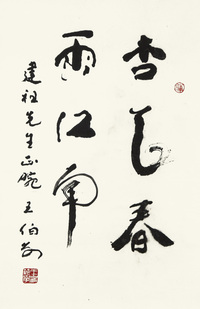 杏花春
雨江南
建祖先生正腕 王伯敏